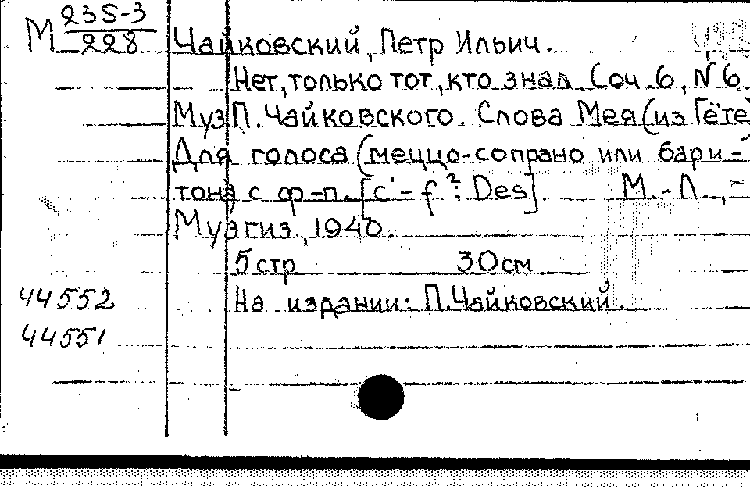 М 235-3
228
Чайковский, Петр Ильич.
Нет, только тот, кто знал. Соч. 6, №6.
Муз П. Чайковского. Слова Мея (из Гёте)
Для голоса (меццо-сопрано или бари-
тона) с ф-п. [c' - f² Des] М. - Л., -
Музгиз, 1940.
5 стр 30 см
44552 На издании: П. Чайковский.
44551